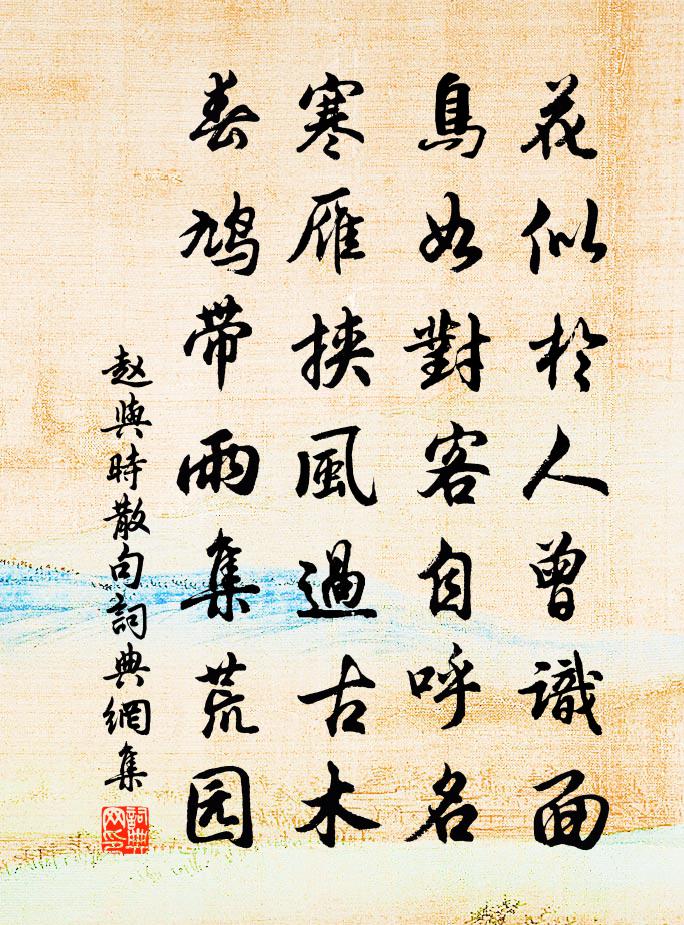 花似於人曾識面
鳥如對客自呼名
寒雁挟風過古木
春鸠带雨集荒园
赵與時散句詞典網集
詞典网印